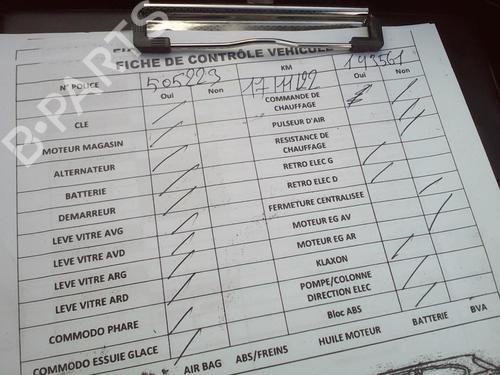 FICHE DE CONTRÔLE VEHICULE
N° POLICE 505223 KM 193561
Oui Non 17/11/22 Oui Non
CLE COMMANDE DE CHAUFFAGE
MOTEUR MAGASIN PULSEUR D'AIR
ALTERNATEUR RESISTANCE DE CHAUFFAGE
BATTERIE RETRO ELEC G
DEMARREUR RETRO ELEC D
LEVE VITRE AVG FERMETURE CENTRALISEE
LEVE VITRE AVD MOTEUR EG AV
LEVE VITRE ARG MOTEUR EG AR
LEVE VITRE ARD KLAXON
COMMODO PHARE POMPE/COLONNE DIRECTION ELEC
COMMODO ESSUIE GLACE Bloc ABS
AIR BAG ABS/FREINS HUILE MOTEUR BATTERIE BVA
B-PARTS